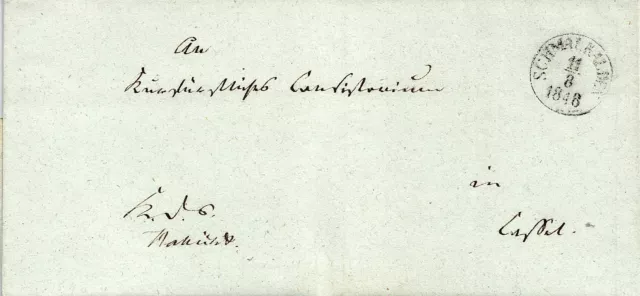 An
Kurfürstliches Consistorium
SCHMALKALDEN
11
8
1848
in
K. d. S.
Cassel.